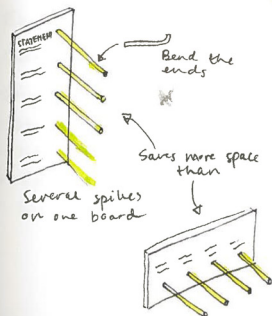 STATEMENT
Bend the
ends
Saves more space
than
Several spikes
on one board